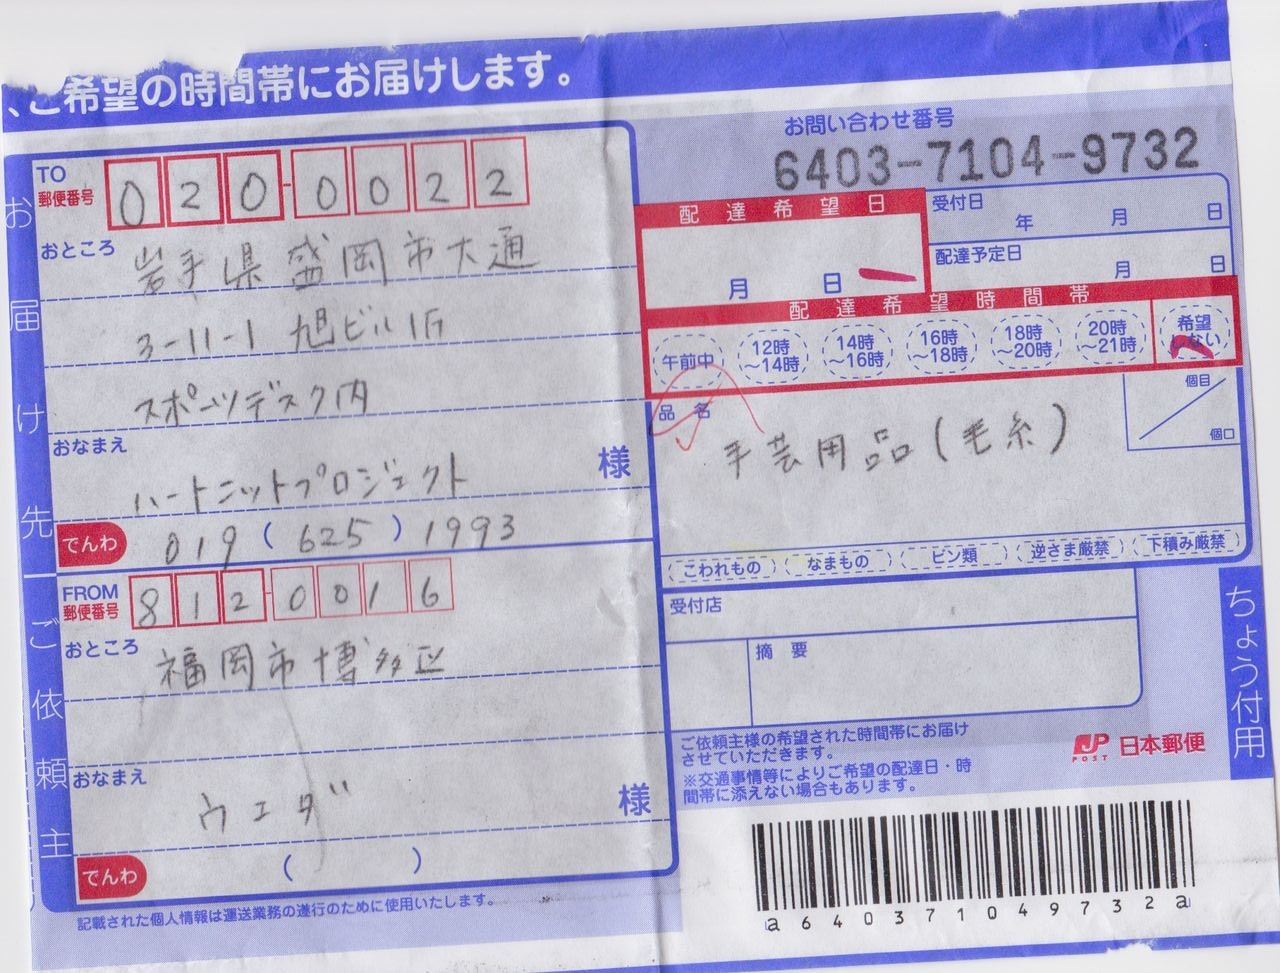 、ご希望の時間帯にお届けします。
お届け先
TO
郵便番号
020-0022
おところ
岩手県盛岡市大通
3-11-1 旭ビル1F
スポーツデスク内
おなまえ
ハートニットプロジェクト
様
でんわ
019(625)1993
ご依頼主
FROM
郵便番号
812-0016
おところ
福岡市博多区
おなまえ
ウエダ
様
でんわ
( )
記載された個人情報は運送業務の遂行のために使用いたします。
お問い合わせ番号
6403-7104-9732
配達希望日
月 日
受付日
年 月 日
配達予定日
月 日
配達希望時間帯
午前中
12時~14時
14時~16時
16時~18時
18時~20時
20時~21時
希望しない
品名
手芸用品(毛糸)
個目
個口
こわれもの
なまもの
ビン類
逆さま厳禁
下積み厳禁
受付店
摘要
ちょう付用
ご依頼主様の希望された時間帯にお届け
させていただきます。
※交通事情等によりご希望の配達日・時
間帯に添えない場合もあります。
JP POST 日本郵便
a640371049732a